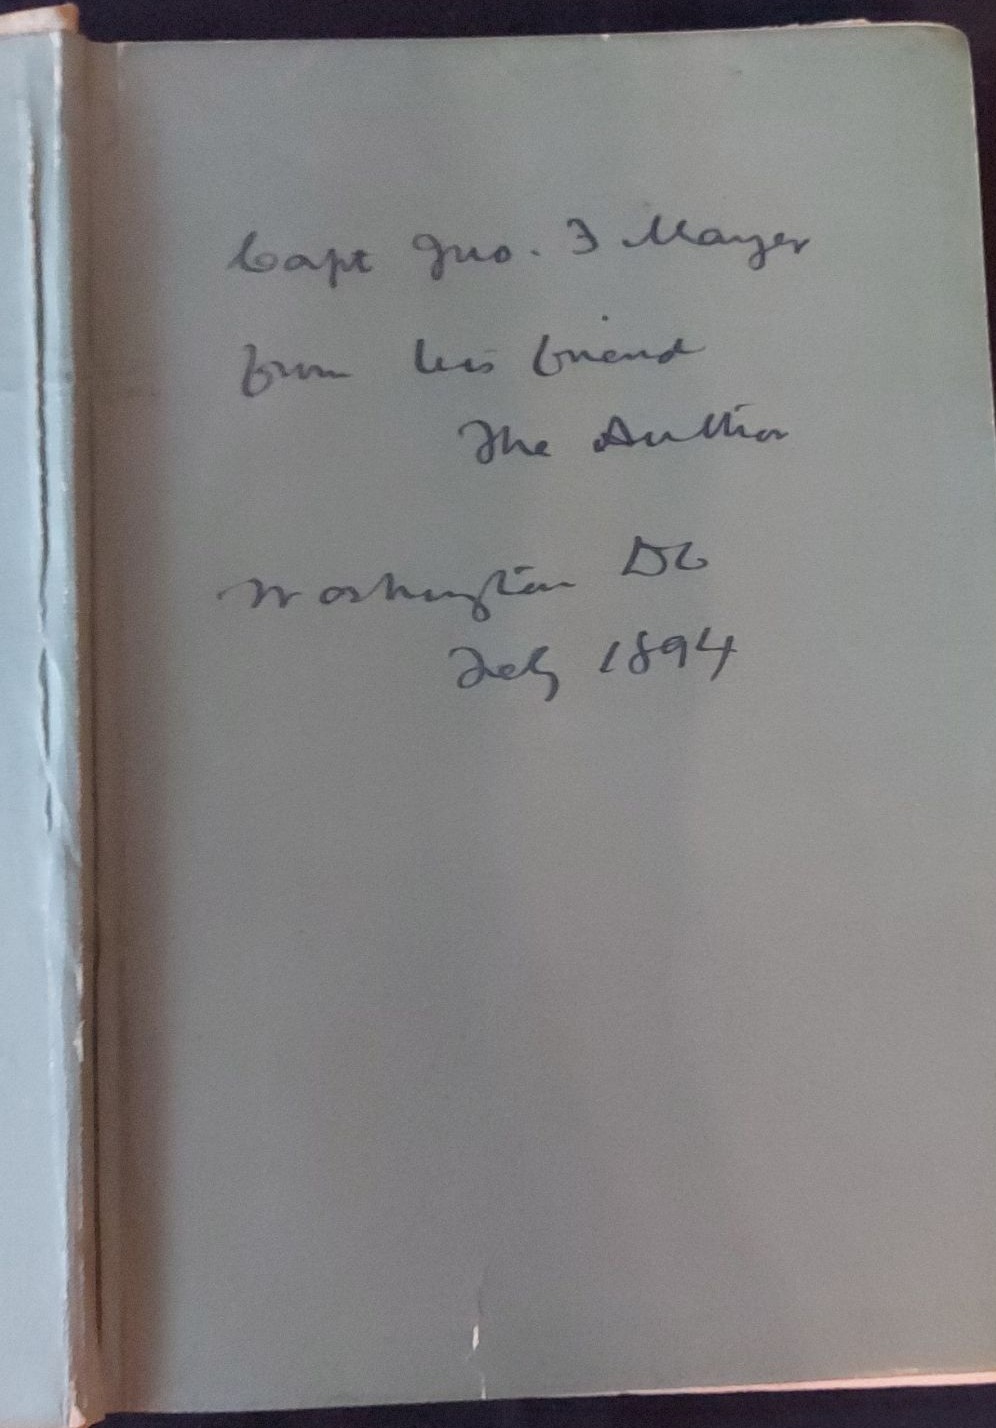 Capt Jno. F Mayer
from his friend
The Author
Washington DC
Feby 1894